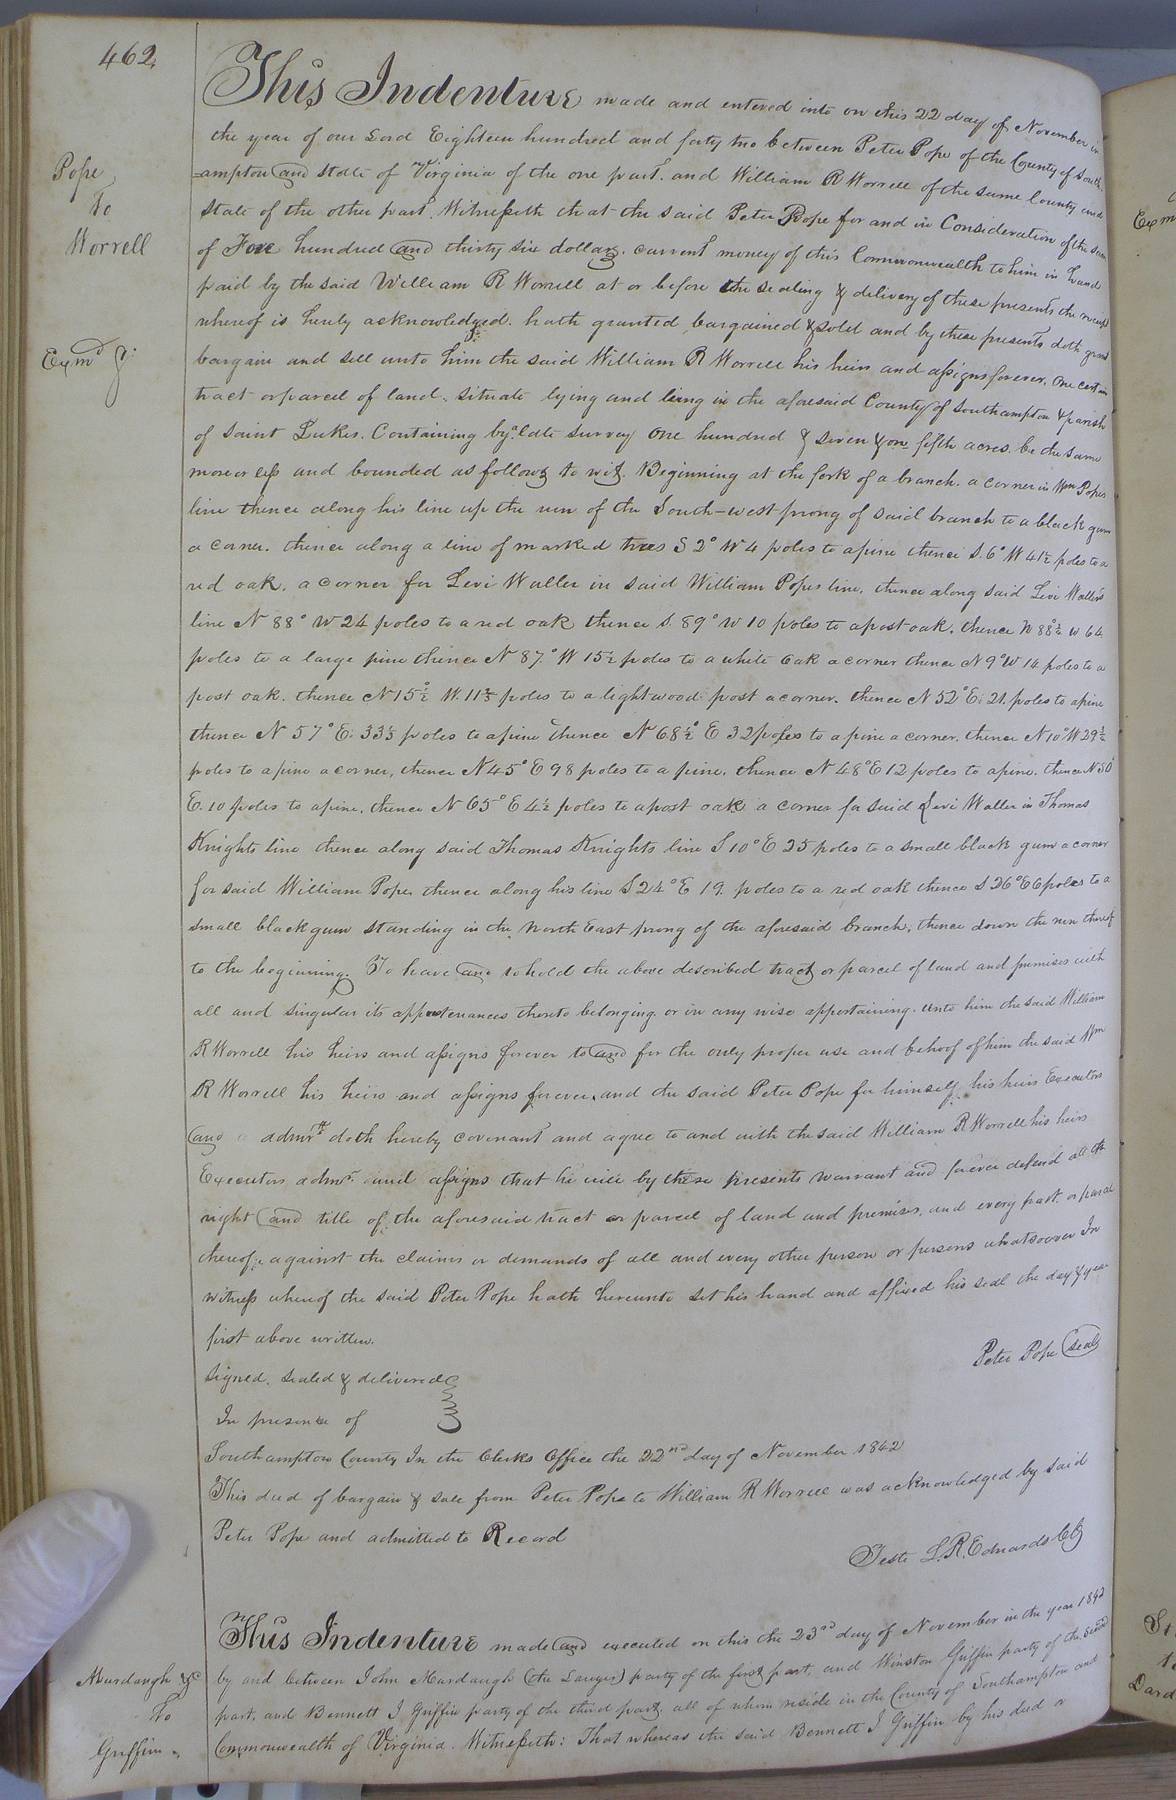 462.
Pope
To
Worrell
Exmd
This Indenture made and entered into on this 22 day of November in
the year of our Lord Eighteen hundred and forty two between Peter Pope of the County of South-
=ampton and State of Virginia of the one part. and William R Worrell of the same County and
State of the other part. Witnesseth that the said Peter Pope for and in Consideration of the sum
of hundred and thirty six dollars. current money of this Commonwealth to him in hand
paid by the said William R Worrell at or before the sealing & delivery of these presents the receipt
whereof is hereby acknowledged. hath granted bargained & sold and by these presents doth grant
bargain and sell unto him the said William R Worrell his heirs and assigns forever. One certain
tract or parcel of land. situate lying and being in the aforesaid County of Southampton & parish
of Saint Lukes. Containing by a late survey one hundred & seven & one fifth acres. be the same
more or less and bounded as follows to wit. Beginning at the fork of a branch. a corner in Wm Popes
line thence along his line up the run of the South-west prong of said branch to a black gum
a corner. thence along a line of marked trees S 2° W 4 poles to a pine thence S. 6° W 41½ poles to a
red oak. a corner for Levi Waller in said William Popes line. thence along said Levi Waller's
line N 88° W 24 poles to a red oak thence S. 89° W 10 poles to a post oak. thence N 88°½ W 64
poles to a large pine thence N 87.° W 15½ poles to a white oak a corner thence N 9° W 14 poles to a
post oak. thence N 15°½ W. 11 poles to a lightwood post a corner. thence N 52° E. 21. poles to a pine
thence N 57° E. 33 poles to a pine thence N 68°½ E 32 poles to a pine a corner. thence N 10° W 29½
poles to a pine a corner, thence N 45° E 98 poles to a pine. thence N 48° E 12 poles to a pine. thence N 50°
E. 10 poles to a pine. thence N 65° E 4½ poles to a post oak a corner for said Levi Waller in Thomas
Knights line thence along said Thomas Knights line S 10° E 25 poles to a small black gum a corner
for said William Pope, thence along his line S 24° E 19. poles to a red oak thence S 26° E 6 poles to a
small black gum standing in the North East prong of the aforesaid branch, thence down the run thereof
to the beginning. To have and to hold the above described tract or parcel of land and premises with
all and singular its appurtenances thereto belonging or in any wise appertaining. unto him the said William
R Worrell his heirs and assigns forever to and for the only proper use and behoof of him the said Wm
R Worrell his heirs and assigns forever. and the said Peter Pope for himself his heirs Executors
and admrs doth hereby covenant and agree to and with the said William R Worrell his heirs
Executors admrs. and assigns that he will by these presents warrant and forever defend all the
right and title of the aforesaid tract or parcel of land and premises, and every part or parcel
thereof. against the claims or demands of all and every other person or persons whatsoever In
witness whereof the said Peter Pope hath hereunto set his hand and affixed his seal the day & year
first above written.
Peter Pope (seal)
Signed, sealed & delivered
In presence of
Southampton County In the Clerks Office the 22nd day of November 1842
This deed of bargain & sale from Peter Pope to William R Worrell was acknowledged by said
Peter Pope and admitted to Record
Teste L. R. Edwards Clk
Murdaugh &c
To
Griffin.
This Indenture made and executed on this the 23rd day of November in the year 1842
by and between John Murdaugh (the Lawyer) party of the first part, and Winston Griffin party of the second
part. and Bennett J Griffin party of the third part all of whom reside in the County of Southampton and
Commonwealth of Virginia. Witnesseth: That whereas the said Bennett J Griffin by his deed
Exm